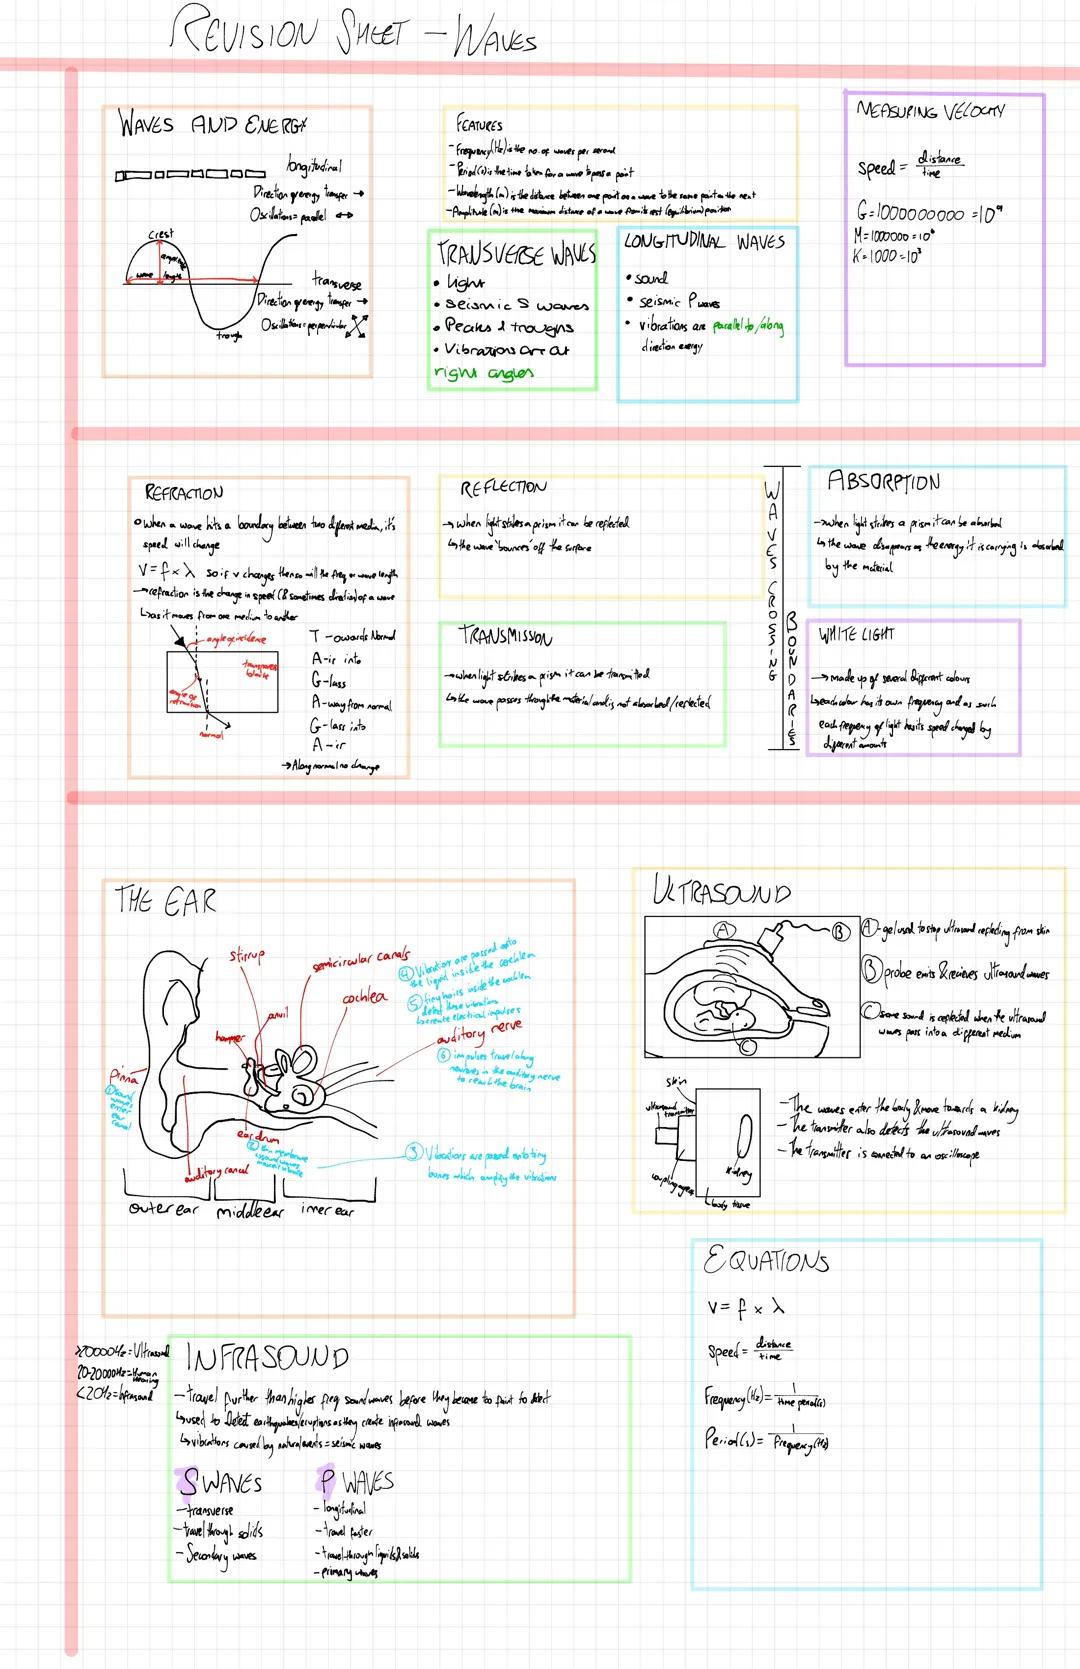 REVISION SHEET - WAVES
WAVES AND ENERGY
longitudinal
Direction of energy transfer →
Oscillations = parallel ↔
crest
amplitude
wave length
transverse
Direction of energy transfer →
Oscillations = perpendicular
trough
FEATURES
- Frequency (Hz) is the no. of waves per second
- Period (s) is the time taken for a wave to pass a point
- Wavelength (m) is the distance between one point on a wave to the same point on the next
- Amplitude (m) is the maximum distance of a wave from its rest (equilibrium) position
TRANSVERSE WAVES
• light
• seismic S waves
• Peaks & troughs
• Vibrations are at
right angles
LONGITUDINAL WAVES
• sound
• seismic P waves
• vibrations are parallel to/along
direction energy
MEASURING VELOCITY
speed = distance
time
G = 1000000000 = 10⁹
M = 1000000 = 10⁶
K = 1000 = 10³
REFRACTION
• When a wave hits a boundary between two different media, it's
speed will change
V = f × λ so if v changes then so will the freq or wave length
→ refraction is the change in speed (& sometimes direction) of a wave
↳ as it moves from one medium to another
angle of incidence
transparent
block
angle of
refraction
normal
T - owards Normal
A - ir into
G - lass
A - way from normal
G - lass into
A - ir
→ Along normal no change
REFLECTION
→ when light strikes a prism it can be reflected
↳ the wave 'bounces' off the surface
TRANSMISSION
→ when light strikes a prism it can be transmitted
↳ the wave passes through the material and is not absorbed/reflected
WAVES CROSSING
BOUNDARIES
ABSORPTION
→ when light strikes a prism it can be absorbed
↳ the wave disappears as the energy it is carrying is absorbed
by the material
WHITE LIGHT
→ made up of several different colours
↳ each colour has its own frequency and as such
each frequency of light has its speed changed by
different amounts
THE EAR
stirrup
semicircular canals
cochlea
anvil
hammer
auditory nerve
pinna
① sound
waves
enter
ear
canal
ear drum
② thin membrane
sound waves
make it vibrate
auditory canal
③ Vibrations are passed onto tiny
bones which amplify the vibrations
④ Vibration are passed onto
the liquid inside the cochlea
⑤ tiny hairs inside the cochlea
detect these vibration
& create electrical impulses
⑥ impulses travel along
neurones in the auditory nerve
to reach the brain
outer ear
middle ear
inner ear
ULTRASOUND
A
B
C
Ⓐ - gel used to stop ultrasound reflecting from skin
Ⓑ probe emits & recieves ultrasound waves
Ⓒ some sound is reflected when the ultrasound
waves pass into a different medium
skin
ultrasound
transmitter
kidney
coupling agent
body tissue
- The waves enter the body & move towards a kidney
- The transmitter also detects the ultrasound waves
- The transmitter is connected to an oscilloscope
EQUATIONS
V = f × λ
Speed = distance
time
Frequency (Hz) = 1
time period (s)
Period (s) = 1
frequency (Hz)
>20000Hz = Ultrasound
20-20000Hz = Human
hearing
<20Hz = Infrasound
INFRASOUND
- travel further than higher freq sound waves before they become too faint to detect
↳ used to detect earthquakes/eruptions as they create infrasound waves
↳ vibrations caused by natural events = seismic waves
S WAVES
- transverse
- travel through solids
- Secondary waves
P WAVES
- longitudinal
- travel faster
- travel through liquids & solids
- primary waves